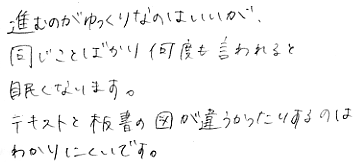 進むのがゆっくりなのはいいが、
同じことばかり何度も言われると
眠くなります。
テキストと板書の図が違うかったりするのは
わかりにくいです。